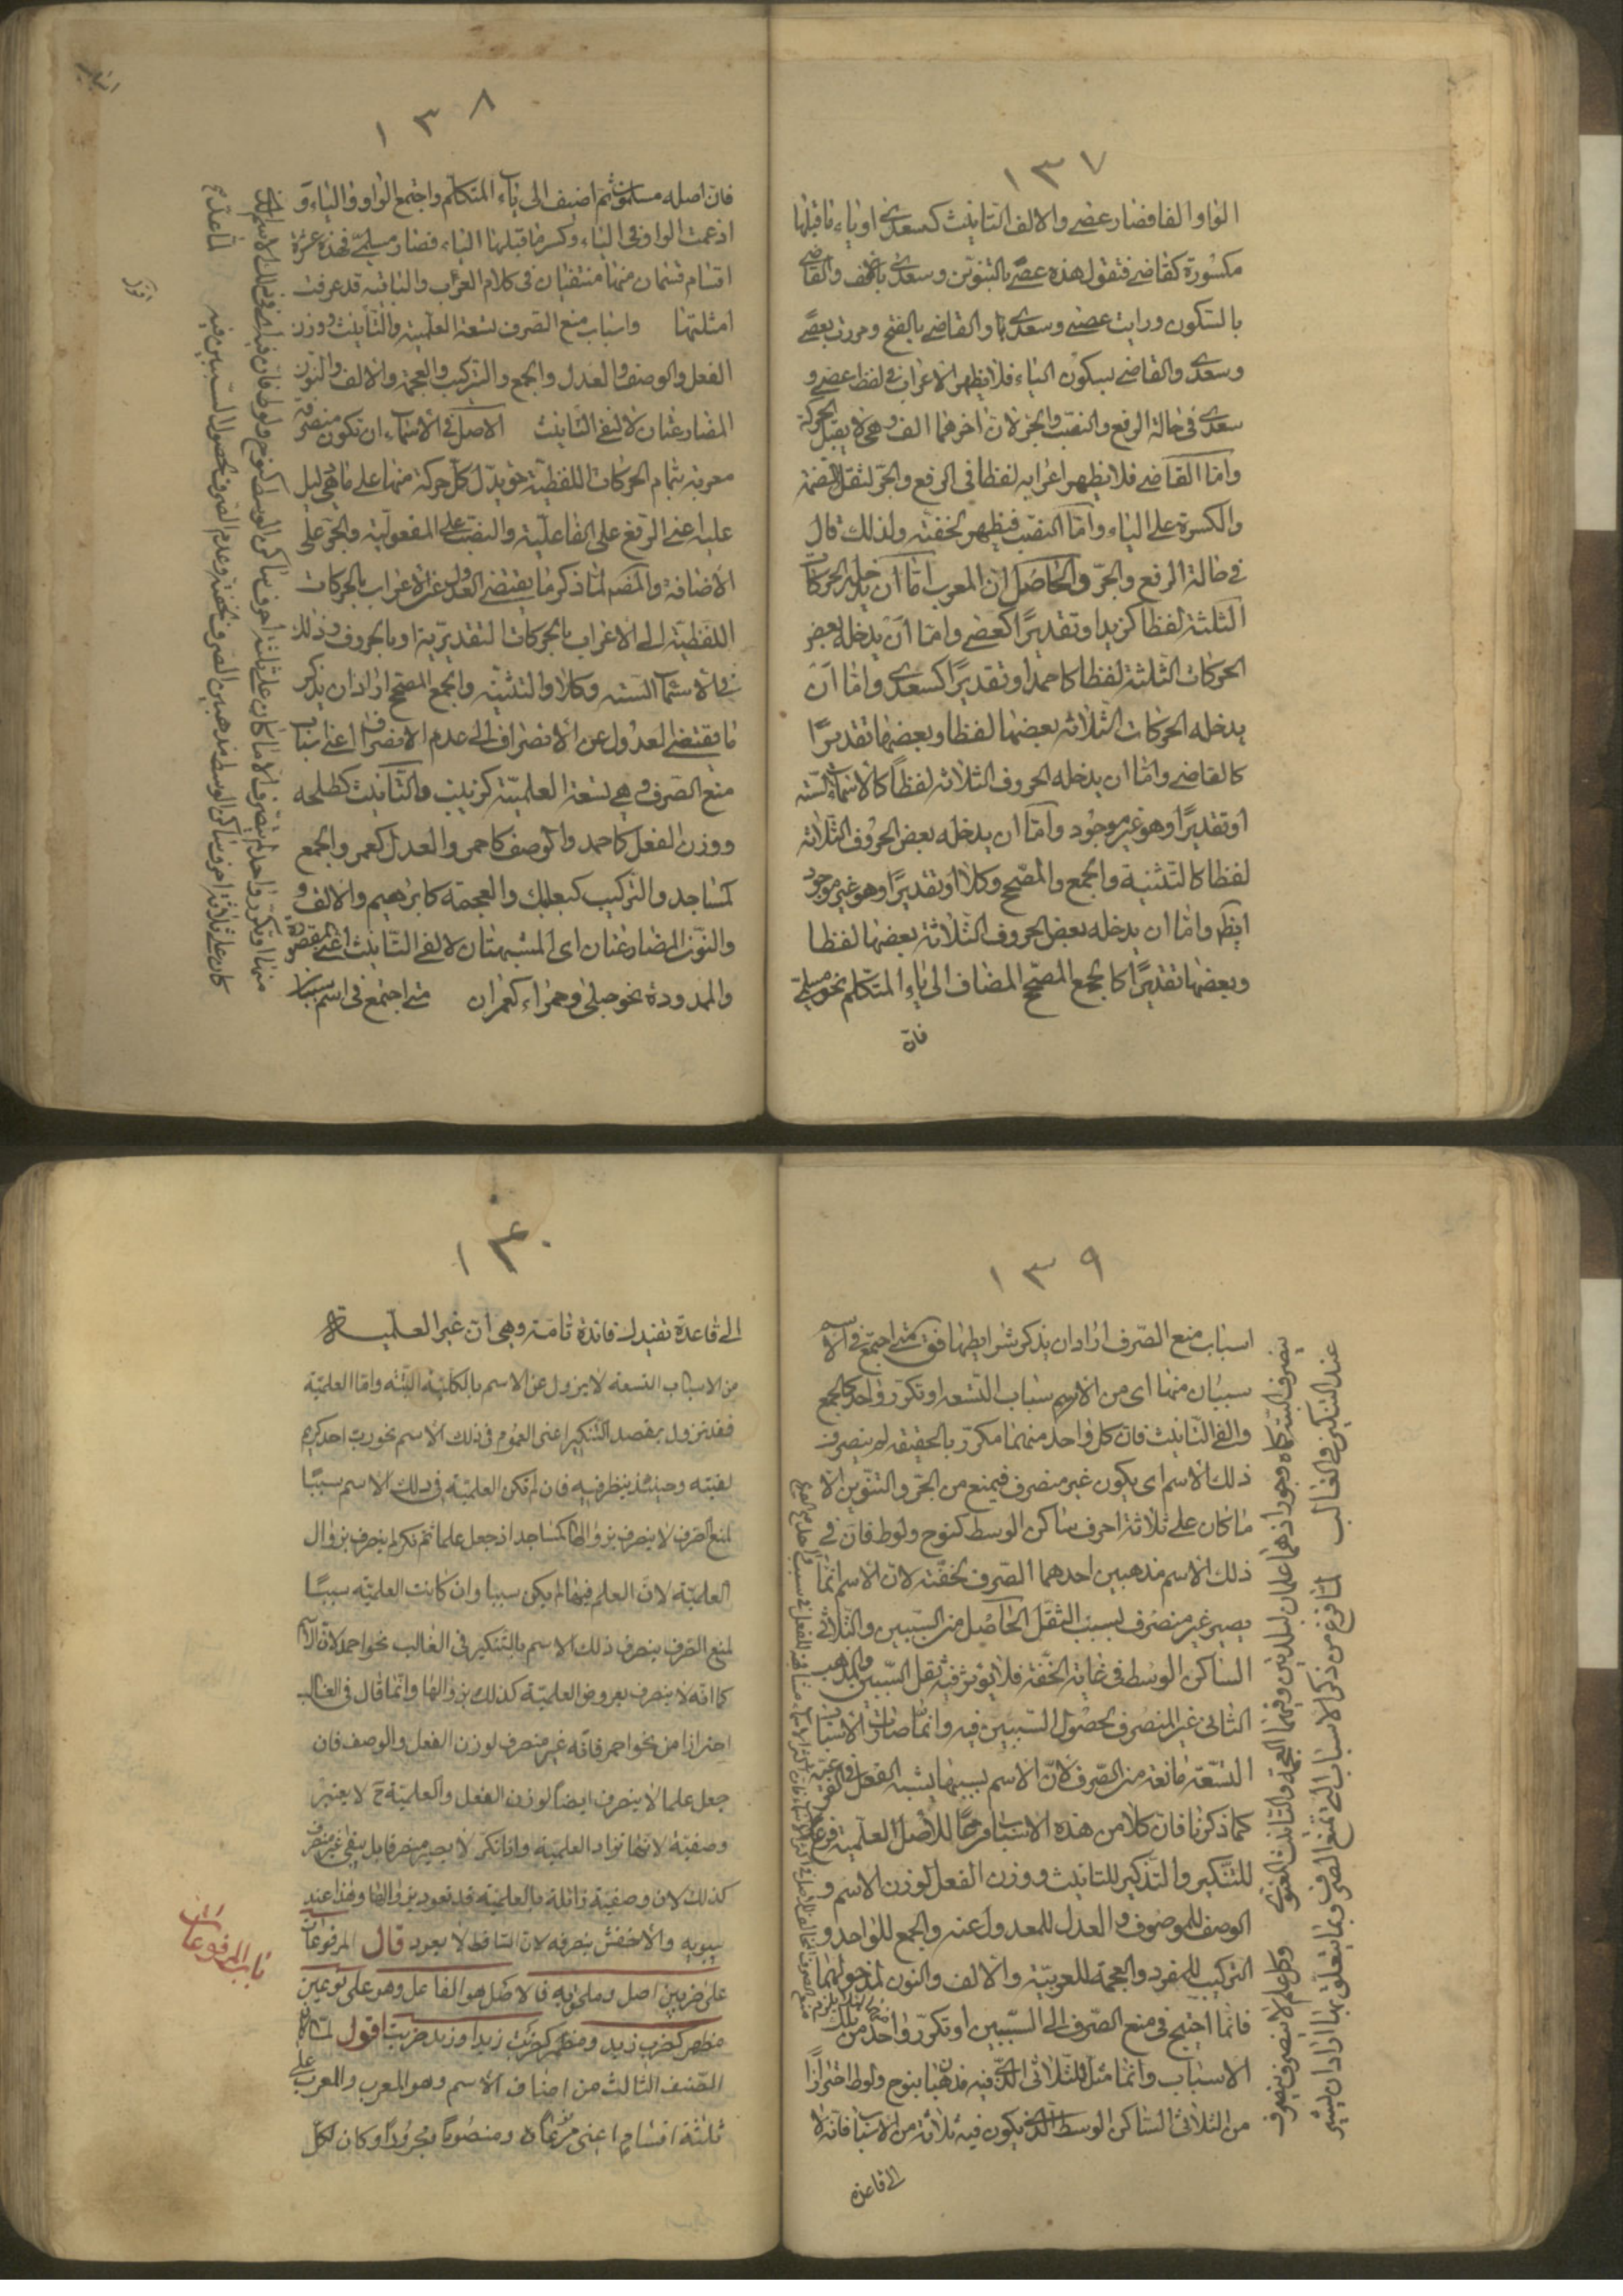 ١٣٧
الواو الفا فصار عصى والالف التانيث كسعدى او ياء ما قبلها
مكسورة كقاضى فتقول هذه عصى بالتنوين وسعدى بالالف والقاضى
بالسكون ورايت عصى وسعدى والقاضى بالفتح ومررت بعصى
وسعدى والقاضى بسكون الياء فلا يظهر الاعراب فى لفظ عصى و
سعدى فى حالة الرفع والنصب والجر لان اخرهما الف وهى لا يقبل الحركة
واما القاضى فلا يظهر اعرابه لفظا فى الرفع والجر لثقل الضمة
والكسرة على الياء واما النصب فيظهر لخفته ولذلك قال
فى حالة الرفع والجر والحاصل ان المعرب اما ان يدخله الحركات
الثلثة لفظا كزيد او تقديرًا كعصى واما ان يدخله بعض
الحركات الثلثة لفظا كاحمد او تقديرًا كسعدى واما ان
يدخله الحركات الثلاثه بعضها لفظا وبعضها تقديرًا
كالقاضى واما ان يدخله الحروف الثلاثه لفظًا كالاسماء الستة
او تقديرًا وهو غير موجود واما ان يدخله بعض الحروف الثلاثة
لفظا كالتثنية والجمع والمصحح وكلا او تقديرًا وهو غير موجود
ايضا واما ان يدخله بعض الحروف الثلاثة بعضها لفظا
وبعضها تقديرًا كالجمع المصحح المضاف الى ياء المتكلم نحو مسلمى
فان
١٣٨
فان اصله مسلمون ثم اضيف الى ياء المتكلم واجتمع الواو والياء و
ادغمت الواو فى الياء وكسر ما قبلها الياء فصار مسلمى فهذه عشرة
اقسام قسمان منها منتفيان فى كلام العرب والباقيه قد عرفت
امثلتها واسباب منع الصرف تسعة العلمية والتأنيث ووزن
الفعل والوصف والعدل والجمع والتركيب والعجمة والالف والنون
المضارعتان لالفى التأنيث الاصل فى الاسماء ان تكون منصرفة
معربة بتمام الحركات اللفظية حتى يدل كل حركة منها على ما هى دليل
عليه اعنى الرفع على الفاعلية والنصب على المفعولية والجر على
الاضافة والمصنف لما ذكر ما يقتضى العدول عن الاعراب بالحركات
اللفظية الى الاعراب بالحركات التقديرية او بالحروف وذلك
فى الاسماء الستة وكلا والتثنية والجمع المصحح اراد ان يذكر
ما يقتضى العدول عن الانصراف الى عدم الانصراف اعنى اسباب
منع الصرف وهى تسعة العلمية كزينب والتأنيث كطلحة
ووزن الفعل كاحمد والوصف كاحمر والعدل كعمر والجمع
كمساجد والتركيب كبعلبك والعجمة كابرهيم والالف و
والنون المضارعتان اى المشبهتان لالفى التأنيث اعنى المقصورة
والممدودة نحو حبلى وحمراء كعمران متى اجتمع فى اسم سببان
منها او تكرر واحد لم ينصرف الا ما كان على ثلثة احرف ساكن الوسط كنوح ولوط فان
كان على ثلاثة احرف ساكن الوسط مذهبين الصرف لخفته وعدم الصرف لحصول السببين فيه
١٣٩
اسباب منع الصرف اراد ان يذكر شرايطها فقال متى اجتمع فى الاسم
سببان منها اى من الاسباب التسعة او تكرر واحد كالجمع
والفى التانيث فان كل واحد منهما مكرر بالحقيقه لم ينصرف
ذلك الاسم اى يكون غير منصرف فيمنع من الجر والتنوين الا
ما كان على ثلاثة احرف ساكن الوسط كنوح ولوط فان فى
ذلك الاسم مذهبين احدهما الصرف لخفته لان الاسم انما
يصير غير منصرف بسبب الثقل الحاصل من السببين والثلاثى
الساكن الوسط فى غاية الخفة فلا يؤثر فيه ثقل السببين والمذهب
الثانى غير المنصرف لحصول السببين فيه وانما صارت الاسباب
التسعة مانعة من الصرف لان الاسم بسببها يشبه الفعل فى الفرعية
كما ذكرنا فان كلا من هذه الاسباب فرعًا للاصل العلمية فرع
للتنكير والتذكير للتانيث ووزن الفعل لوزن الاسم و
الوصف للموصوف والعدل للمعدول عنه والجمع للواحد و
التركيب للمفرد والعجمة للعربية والالف والنون لمدخولهما
فانما احتيج فى منع الصرف الى السببين او تكرر واحد من تلك
الاسباب وانما مثل للثلاثى الذى فيه مذهبان بنوح ولوط احترازًا
من الثلاثى الساكن الوسط الذى يكون فيه ثلاثة من الاسباب فانه لا
ينصرف البتة كماه وجور اذهما علمان لبلدتين وفيهما العجمة والتانيث المعنوى وكل علم لا ينصرف ينصرف
عند التنكير فى الغالب لما فرغ من ذكر الاسباب التى تمنع الصرف وما يتعلق بها اراد ان يشير
الى قاعدة
١٤٠
الى قاعدة تفيدك فائدة تامة وهى ان غير العلمية
من الاسباب التسعة لا يزول عن الاسم بالكلية البتة واما العلمية
فقد تزول بقصد التنكير اعنى العموم فى ذلك الاسم نحو رب احد كريم
لقيته وحينئذ ينظر فيه فان لم تكن العلمية فى ذلك الاسم سببًا
لمنع الصرف لا ينصرف بزوالها كمساجد اذ جعل علما ثم نكر لم ينصرف بزوال
العلمية لان العلم فيها لم يكن سببا وان كانت العلمية سببًا
لمنع الصرف ينصرف ذلك الاسم بالتنكير فى الغالب نحو احمد لان الاسم
كما انه لا ينصرف بعروض العلمية كذلك بزوالها وانما قال فى الغالب
احترازا من نحو احمر فانه غير منصرف لوزن الفعل والوصف فان
جعل علما لا ينصرف ايضًا لوزن الفعل والعلمية ح لا يعتبر
وصفيته لانها تضاد العلمية واذا نكر لا يصير منصرفا بل يبقى غير منصرف
كذلك لان وصفيته زائلة بالعلمية قد تعود بزوالها وهذا عند
سيبويه والاخفش ينصرفه لان الساقط لا يعود قال المرفوعات
على ضربين اصل وملحق به فالاصل هو الفاعل وهو على نوعين
مظهر كضرب زيد ومضمر كضربت زيدا وزيد ضربت اقول لما كان
الصنف الثالث من اصناف الاسم وهو المعرب والمعرب على
ثلثة اقسام اعنى مرفوعًا ومنصوبًا ومجرورًا وكان لكل
باب المرفوعات